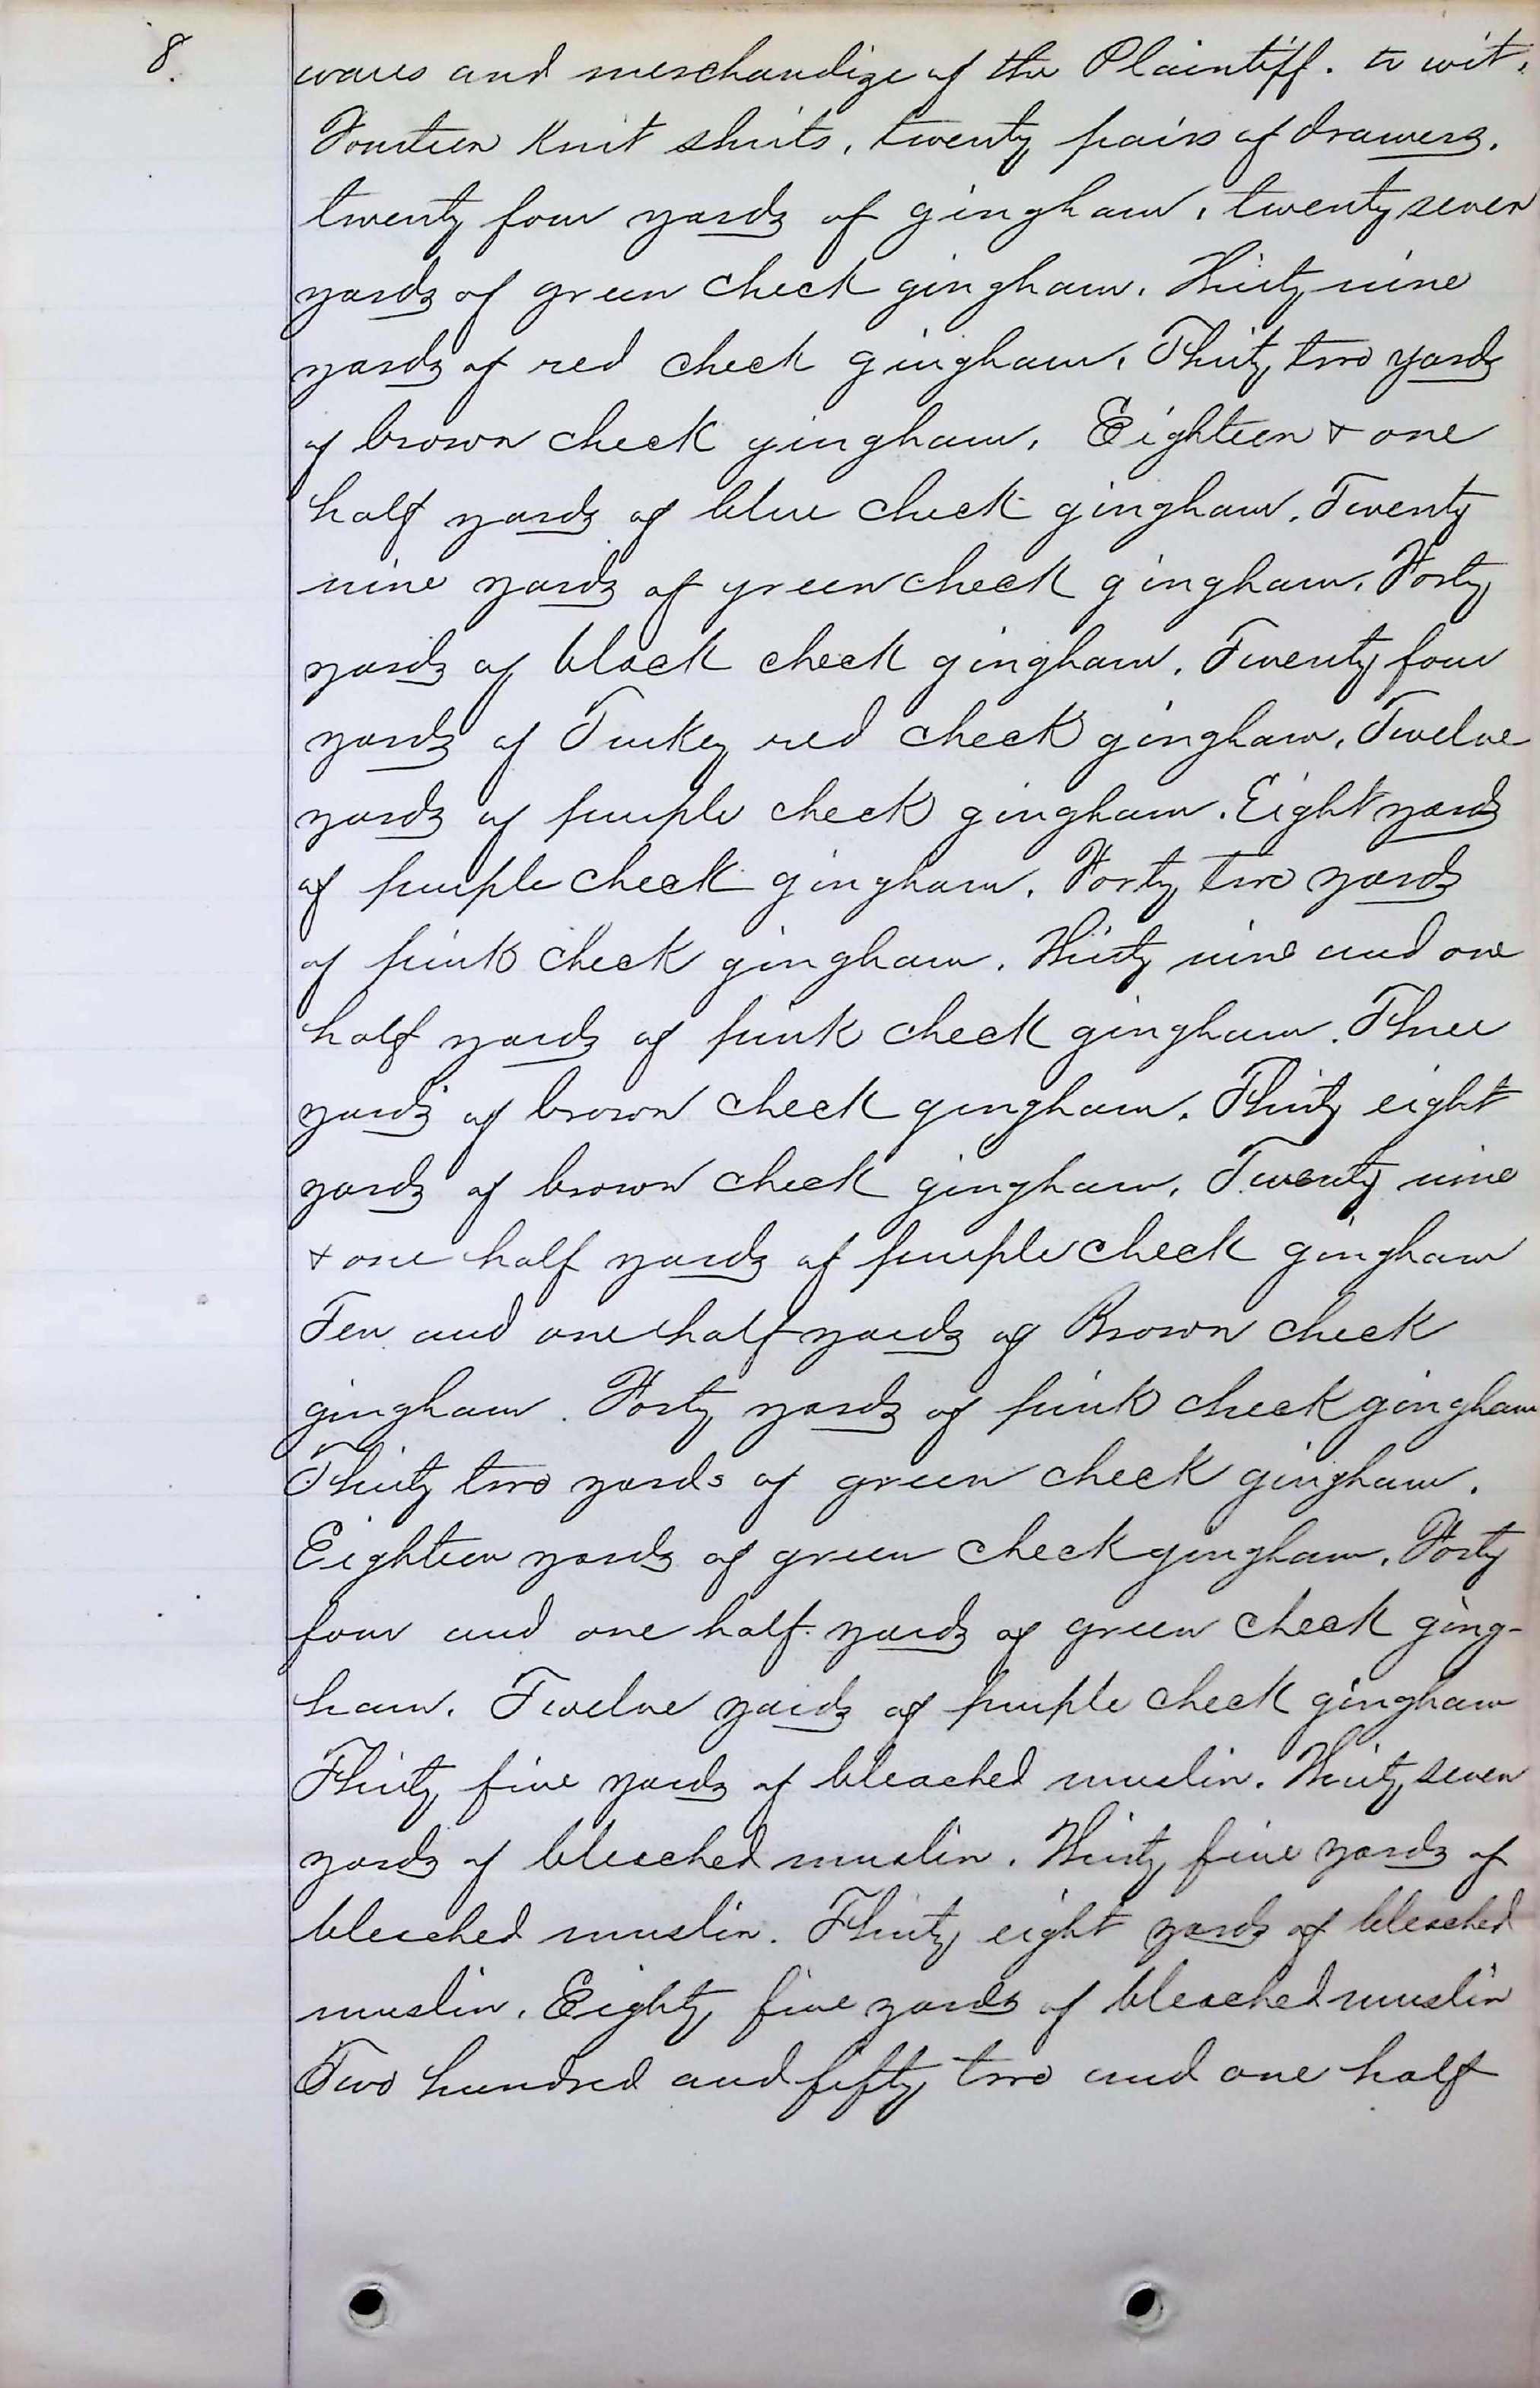 8.
wares and merchandize of the Plaintiff. to wit.
Fourteen Knit shirts, twenty pairs of drawers.
twenty four yards of gingham, twenty seven
yards of green check gingham. Thirty nine
yards of red check gingham. Thirty two yards
of brown check gingham. Eighteen & one
half yards of blue check gingham. Twenty
nine yards of green check gingham. Forty
yards of black check gingham. Twenty four
yards of Turkey red check gingham. Twelve
yards of purple check gingham. Eight yards
of purple check gingham. Forty two yards
of pink check gingham. Thirty nine and one
half yards of pink check gingham. Three
yards of brown check gingham. Thirty eight
yards of brown check gingham. Twenty nine
& one half yards of purple check gingham
Ten and one half yards of Brown check
gingham. Forty yards of pink check gingham
Thirty two yards of green check gingham.
Eighteen yards of green check gingham. Forty
four and one half yards of green check ging-
ham. Twelve yards of purple check gingham
Thirty five yards of bleached muslin. Thirty seven
yards of bleached muslin. Thirty five yards of
bleached muslin. Thirty eight yards of bleached
muslin. Eighty five yards of bleached muslin
Two hundred and fifty two and one half